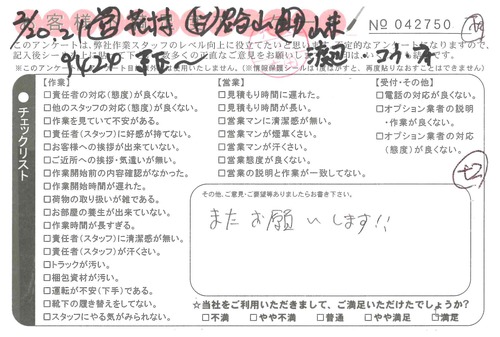 No 042750
このアンケートは、弊社作業スタッフのレベル向上に役立てたいと思いま
※このアンケート
【作業】
□責任者の対応(態度)が良くない。
□他のスタッフの対応(態度)が良くない。
□作業を見ていて不安がある。
□責任者(スタッフ)に好感が持てない。
□お客様への挨拶が出来ていない。
□ご近所への挨拶・気遣いが無い。
□作業開始前の内容確認がなかった。
□作業開始時間が遅れた。
□荷物の取り扱いが雑である。
□お部屋の養生が出来ていない。
□作業時間が長すぎる。
□責任者(スタッフ)に清潔感が無い。
□責任者(スタッフ)が汗くさい。
□トラックが汚い。
□梱包資材が汚い。
□運転が不安(下手)である。
□靴下の履き替えをしてない。
□スタッフにやる気がみられない。
【営業】
□見積もり時間に遅れた。
□見積もり時間が長い。
□営業マンに清潔感が無い。
□営業マンが煙草くさい。
□営業マンが汗くさい。
□営業態度が良くない。
□営業の説明と作業が一致してない。
【受付・その他】
□電話の対応が良くない。
□オプション業者の説明
・作業が良くない。
□オプション業者の対応
(態度)が良くない。
チェックリスト
その他、ご意見・ご要望等ありましたらお書き下さい。
またお願いします!!
☆当社をご利用いただきまして、ご満足いただけたでしょうか?
□不満 □やや不満 □普通 □やや満足 □満足